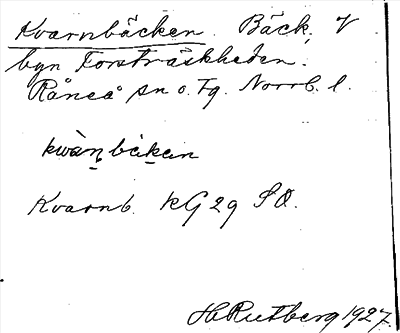 Kvarnbäcken. Bäck, V
byn Forsträskheden.
Råneå sn o. Tg. Norrb. l.
kwàn̥bäḵan
Kvarnb. KG 29 SO.
HRutberg 1927.